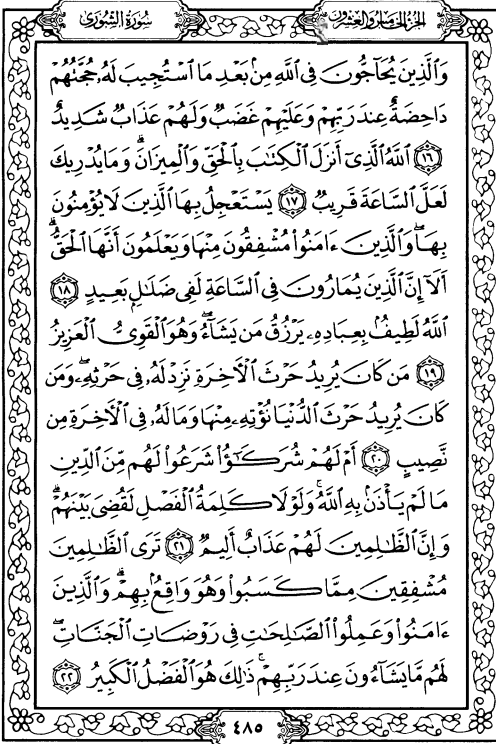 سورة الشورى
الجزء الخامس والعشرون
وَالَّذِينَ يُحَاجُّونَ فِى اللَّهِ مِنۢ بَعْدِ مَا اسْتُجِيبَ لَهُۥ حُجَّتُهُمْ
دَاحِضَةٌ عِندَ رَبِّهِمْ وَعَلَيْهِمْ غَضَبٌ وَلَهُمْ عَذَابٌ شَدِيدٌ
﴿١٦﴾ اللَّهُ الَّذِىٓ أَنزَلَ الْكِتَٰبَ بِالْحَقِّ وَالْمِيزَانَ ۗ وَمَا يُدْرِيكَ
لَعَلَّ السَّاعَةَ قَرِيبٌ ﴿١٧﴾ يَسْتَعْجِلُ بِهَا الَّذِينَ لَا يُؤْمِنُونَ
بِهَا ۖ وَالَّذِينَ ءَامَنُوا۟ مُشْفِقُونَ مِنْهَا وَيَعْلَمُونَ أَنَّهَا الْحَقُّ ۗ
أَلَآ إِنَّ الَّذِينَ يُمَارُونَ فِى السَّاعَةِ لَفِى ضَلَٰلٍۭ بَعِيدٍ ﴿١٨﴾
اللَّهُ لَطِيفٌۢ بِعِبَادِهِۦ يَرْزُقُ مَن يَشَآءُ ۖ وَهُوَ الْقَوِىُّ الْعَزِيزُ
﴿١٩﴾ مَن كَانَ يُرِيدُ حَرْثَ الْأَخِرَةِ نَزِدْ لَهُۥ فِى حَرْثِهِۦ ۖ وَمَن
كَانَ يُرِيدُ حَرْثَ الدُّنْيَا نُؤْتِهِۦ مِنْهَا وَمَا لَهُۥ فِى الْأَخِرَةِ مِن
نَّصِيبٍ ﴿٢٠﴾ أَمْ لَهُمْ شُرَكَٰٓؤُا۟ شَرَعُوا۟ لَهُم مِّنَ الدِّينِ
مَا لَمْ يَأْذَنۢ بِهِ اللَّهُ ۚ وَلَوْلَا كَلِمَةُ الْفَصْلِ لَقُضِىَ بَيْنَهُمْ ۗ
وَإِنَّ الظَّٰلِمِينَ لَهُمْ عَذَابٌ أَلِيمٌ ﴿٢١﴾ تَرَى الظَّٰلِمِينَ
مُشْفِقِينَ مِمَّا كَسَبُوا۟ وَهُوَ وَاقِعٌۢ بِهِمْ ۗ وَالَّذِينَ
ءَامَنُوا۟ وَعَمِلُوا۟ الصَّٰلِحَٰتِ فِى رَوْضَاتِ الْجَنَّاتِ ۖ
لَهُم مَّا يَشَآءُونَ عِندَ رَبِّهِمْ ۚ ذَٰلِكَ هُوَ الْفَضْلُ الْكَبِيرُ ﴿٢٢﴾
٤٨٥